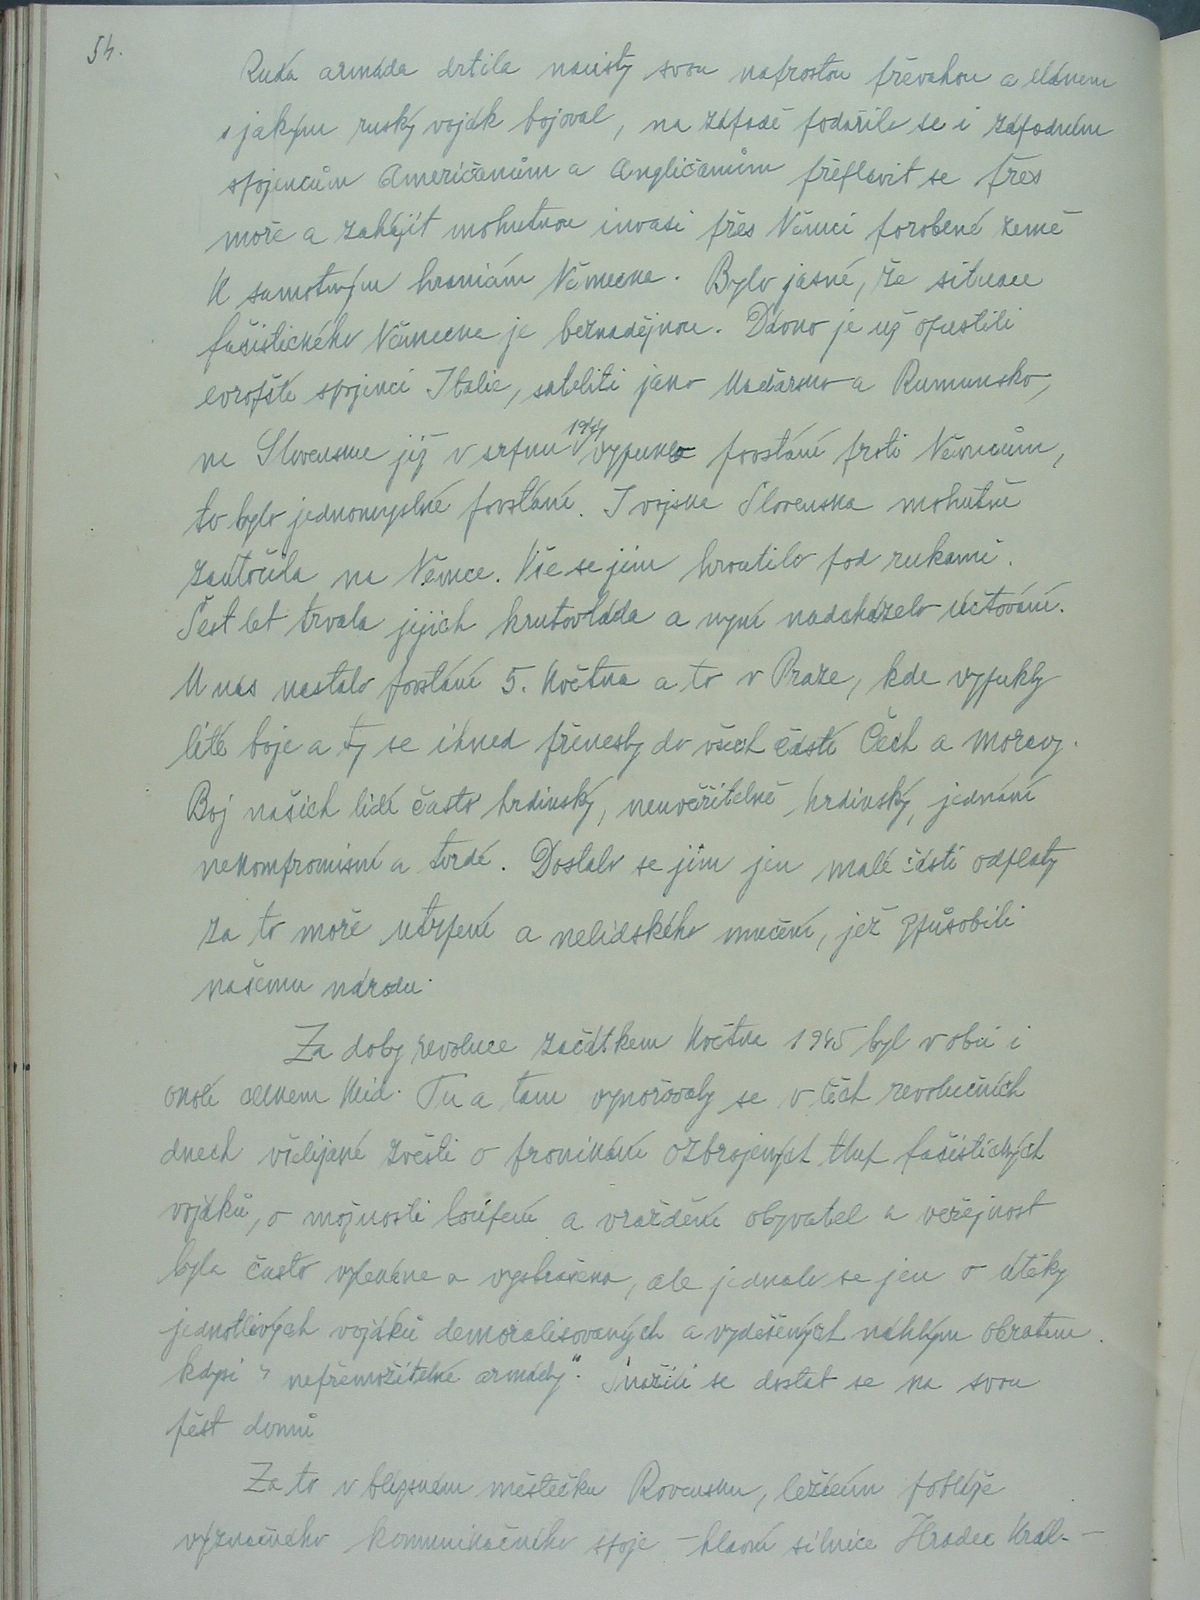 54.
Rudá armáda drtila nacisty svou naprostou převahou a elánem
s jakým ruský voják bojoval, na západě podařilo se i západním
spojencům Američanům a Angličanům přeplavit se přes
moře a zahájit mohutnou invasi přes Němci porobené země
k samotným hranicím Německa. Bylo jasné, že situace
fašistického Německa je beznadějnou. Dávno je už opustili
evropští spojenci Italie, sateliti jako Maďarsko a Rumunsko,
na Slovensku již v srpnu 1944 vypuklo povstání proti Němcům,
to bylo jednomyslné povstání. I vojska Slovenska mohutně
zaútočila na Němce. Vše se jim hroutilo pod rukami.
Šest let trvala jejich krutovláda a nyní nadcházelo účtování.
U nás nastalo povstání 5. května a to v Praze, kde vypukly
lité boje a ty se ihned přenesly do všech částí Čech a Moravy.
Boj našich lidí často hrdinský, neuvěřitelně hrdinský, jednání
nekompromisní a tvrdé. Dostalo se jim jen malé části odplaty
za to moře utrpení a nelidského mučení, jež způsobili
našemu národu.
Za doby revoluce začátkem května 1945 byl v obci i
okolí celkem klid. Tu a tam vynořovaly se v těch revolučních
dnech všelijaké zvěsti o pronikání ozbrojených tlup fašistických
vojáků, o možnosti loupení a vraždění obyvatel a veřejnost
byla často vylekána a vystrašena, ale jednalo se jen o útěky
jednotlivých vojáků demoralisovaných a vyděšených náhlým obratem
kdysi "nepřemožitelné armády". Snažili se dostat se na svou
pěst domů
Za to v blízkém městečku Rovensku, ležícím poblíže
význačného komunikačního spoje - hlavní silnice Hradec Král. -